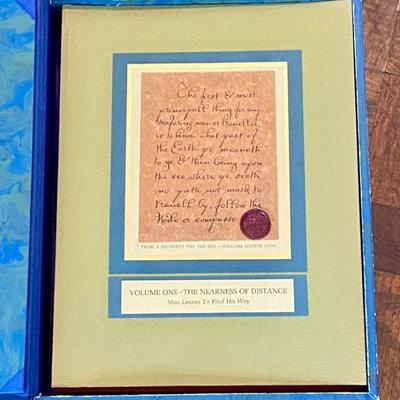 The first & most
principall thing for any
seafaring man or Traveller
is to know what part of
the Earth ye meaneth
to go, & then being upon
the sea, where ye seeth
no path nor mark to
travell by, follow the
Node or compasse
FROM A REGIMENT FOR THE SEA—WILLIAM BOURNE
VOLUME ONE—THE NEARNESS OF DISTANCE
Man Learns To Find His Way